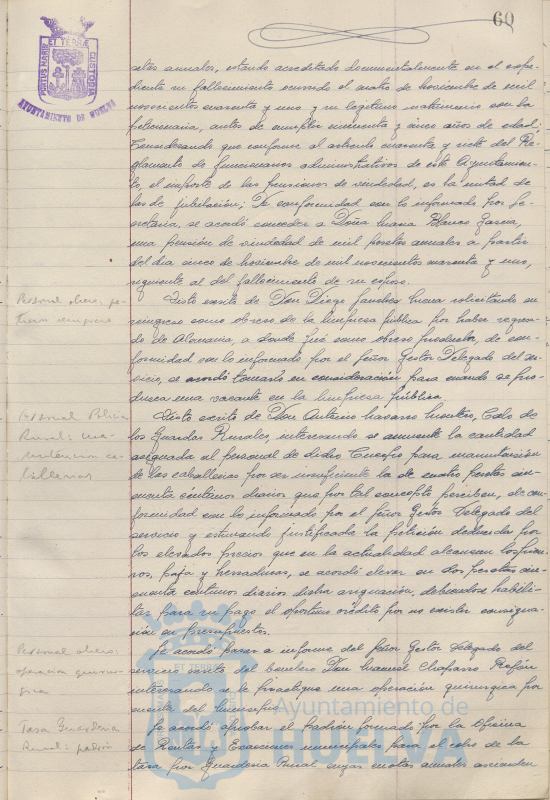 60
PORTUS MARIS ET TERRÆ CUSTODIA
AYUNTAMIENTO DE HUELVA
setas anuales, estando acreditado documentalmente en el expe-
diente su fallecimiento ocurrido el cuatro de noviembre de mil
novecientos cuarenta y uno y su legítimo matrimonio con la
peticionaria, antes de cumplir cincuenta y cinco años de edad;
Considerando que conforme al artículo cuarenta y siete del Re-
glamento de funcionarios administrativos de este Ayuntamien-
to, el importe de las pensiones de viudedad, es la mitad de
las de jubilación; De conformidad con lo informado por Se-
cretaría, se acordó conceder a Doña Juana Blanco García,
una pensión de viudedad de mil pesetas anuales a partir
del dia cinco de noviembre de mil novecientos cuarenta y uno,
siguiente al del fallecimiento de su esposo.
Personal obrero: pe-
Visto escrito de Don Diego Sanchez solicitando su
reingreso como obrero de la limpieza pública por haber regresa-
do de Alemania, a donde fué como obrero productor, de con-
formidad con lo informado por el Señor Gestor Delegado del ser-
vicio, se acordó tomarlo en consideración para cuando se pro-
duzca una vacante en la limpieza pública.
Personal Policía
Rural: ma-
nutencion ca-
ballerias
Visto escrito de Don Antonio Navarro Montero, Cabo de
los Guardas Rurales, interesando se aumente la cantidad
asignada al personal de dicho Cuerpo para manutención
de las caballerias por ser insuficiente la de cuatro pesetas cin-
cuenta céntimos diarios que por tal concepto perciben, de con-
formidad con lo informado por el Señor Gestor Delegado del
servicio y estimando justificada la petición deducida por
los elevados precios que en la actualidad alcanzan los pien-
sos, paja y herraduras, se acordó elevar en dos pesetas cin-
cuenta céntimos diarios dicha asignación, debiendose habili-
tar para su pago el oportuno crédito por no existir consigna-
ción en presupuestos.
Personal obrero:
operación quirur-
gica
Se acordó pasar a informe del Señor Gestor Delegado del
servicio escrito del bombero Don Manuel Chaparro
interesando se le practique una operación quirurgica por
cuenta del Municipio.
Tasa Guarderia
Rural: padrón
Se acordó aprobar el padrón formado por la Oficina
de Rentas y Exacciones municipales para el cobro de la
tasa por Guarderia Rural cuyas cuotas anuales ascienden
Ayuntamiento de
HUELVA